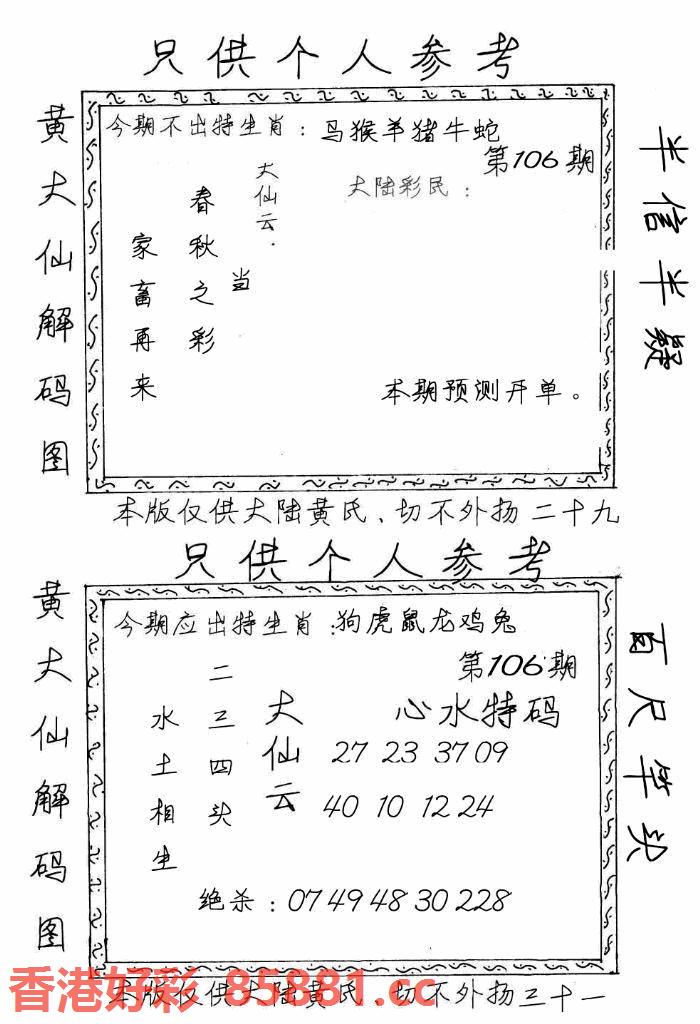 只供个人参考
黄大仙解码图
今期不出特生肖：马猴羊猪牛蛇
第106期
大陆彩民：
大仙云.
当
春秋之彩
家畜再来
本期预测开单。
半信半疑
本版仅供大陆黄氏、切不外扬二十九
只供个人参考
黄大仙解码图
今期应出特生肖:狗虎鼠龙鸡兔
第106期
心水特码
大仙云
二三四头
水土相生
27 23 37 09
40 10 12 24
绝杀：07 49 48 30 228
百尺竿头
本版仅供大陆黄氏、切不外扬三十一
香港好彩 85881.cc